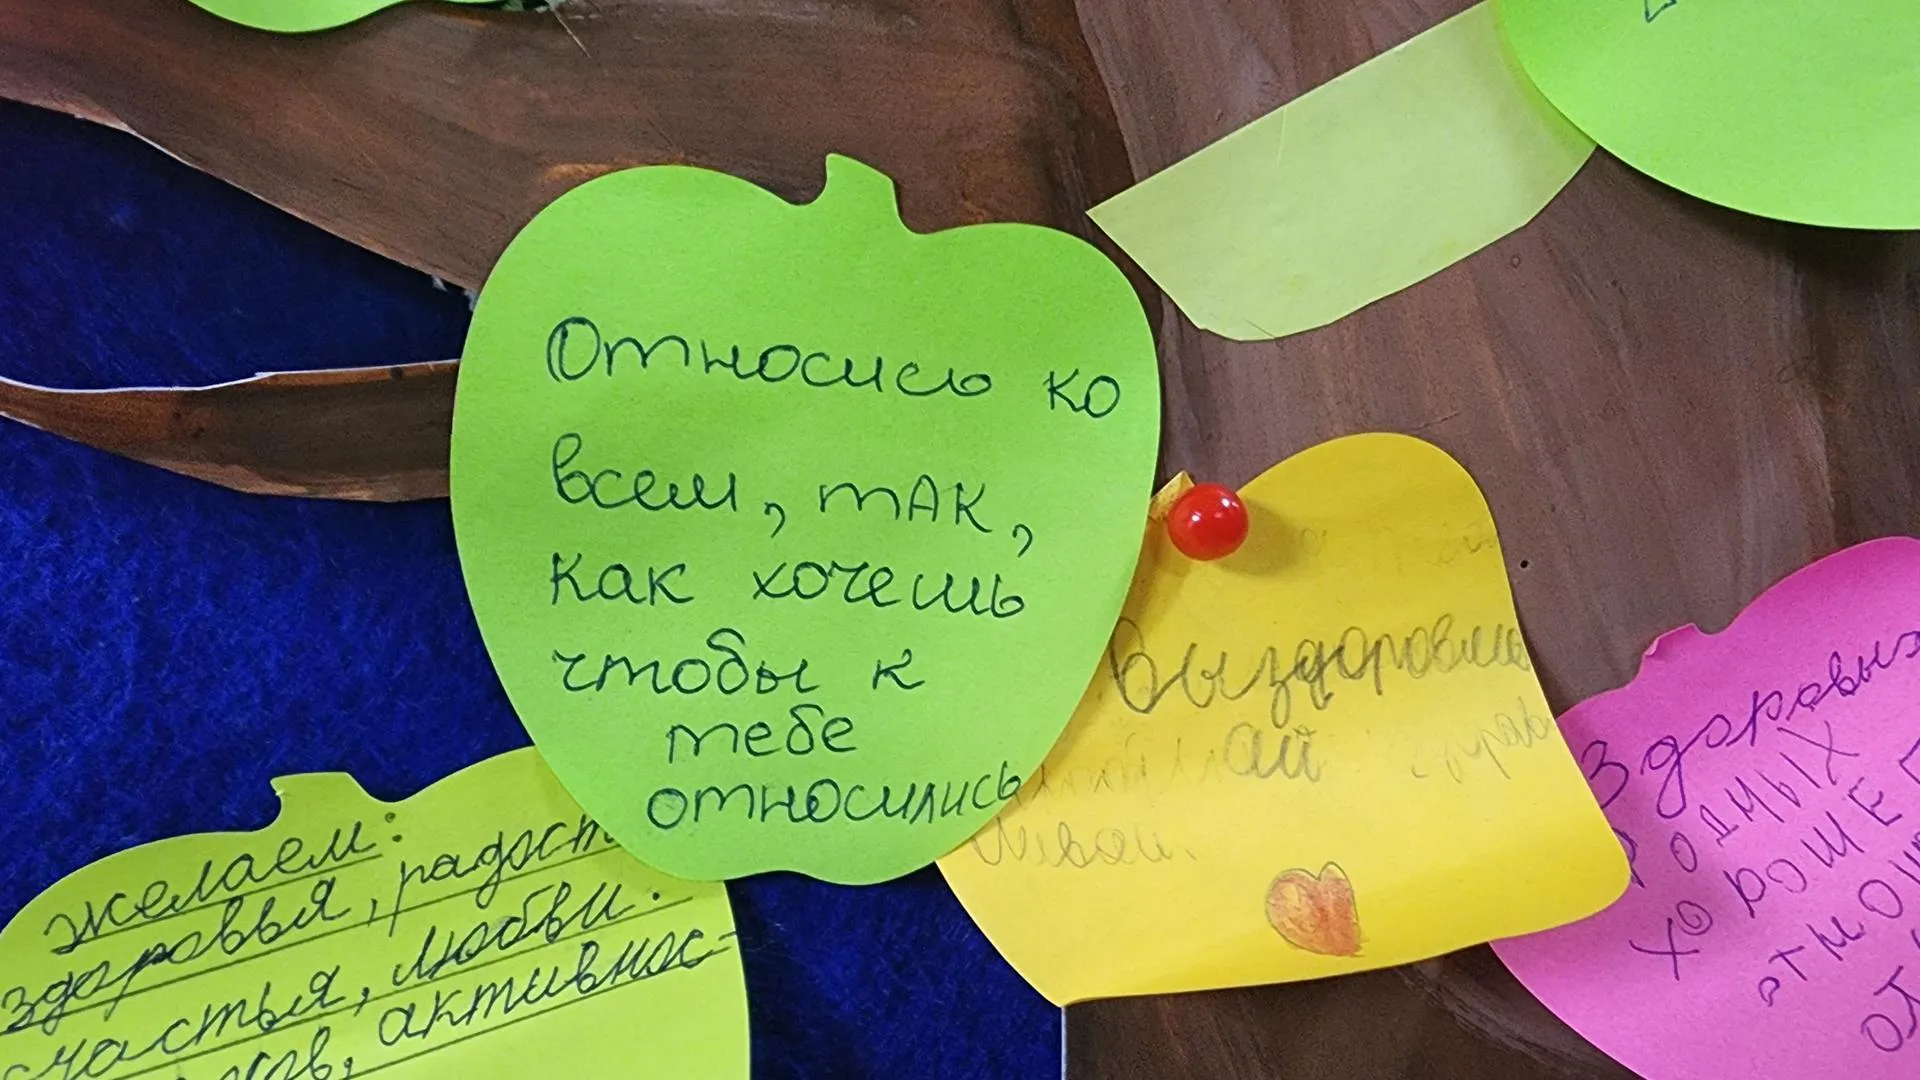 Относись ко
всем, так,
как хочешь
чтобы к
тебе
относились
Выздоровли
ай
желаем:
здоровья, радост
счастья, любви.
активнос-
Здоровых
родных
хороше